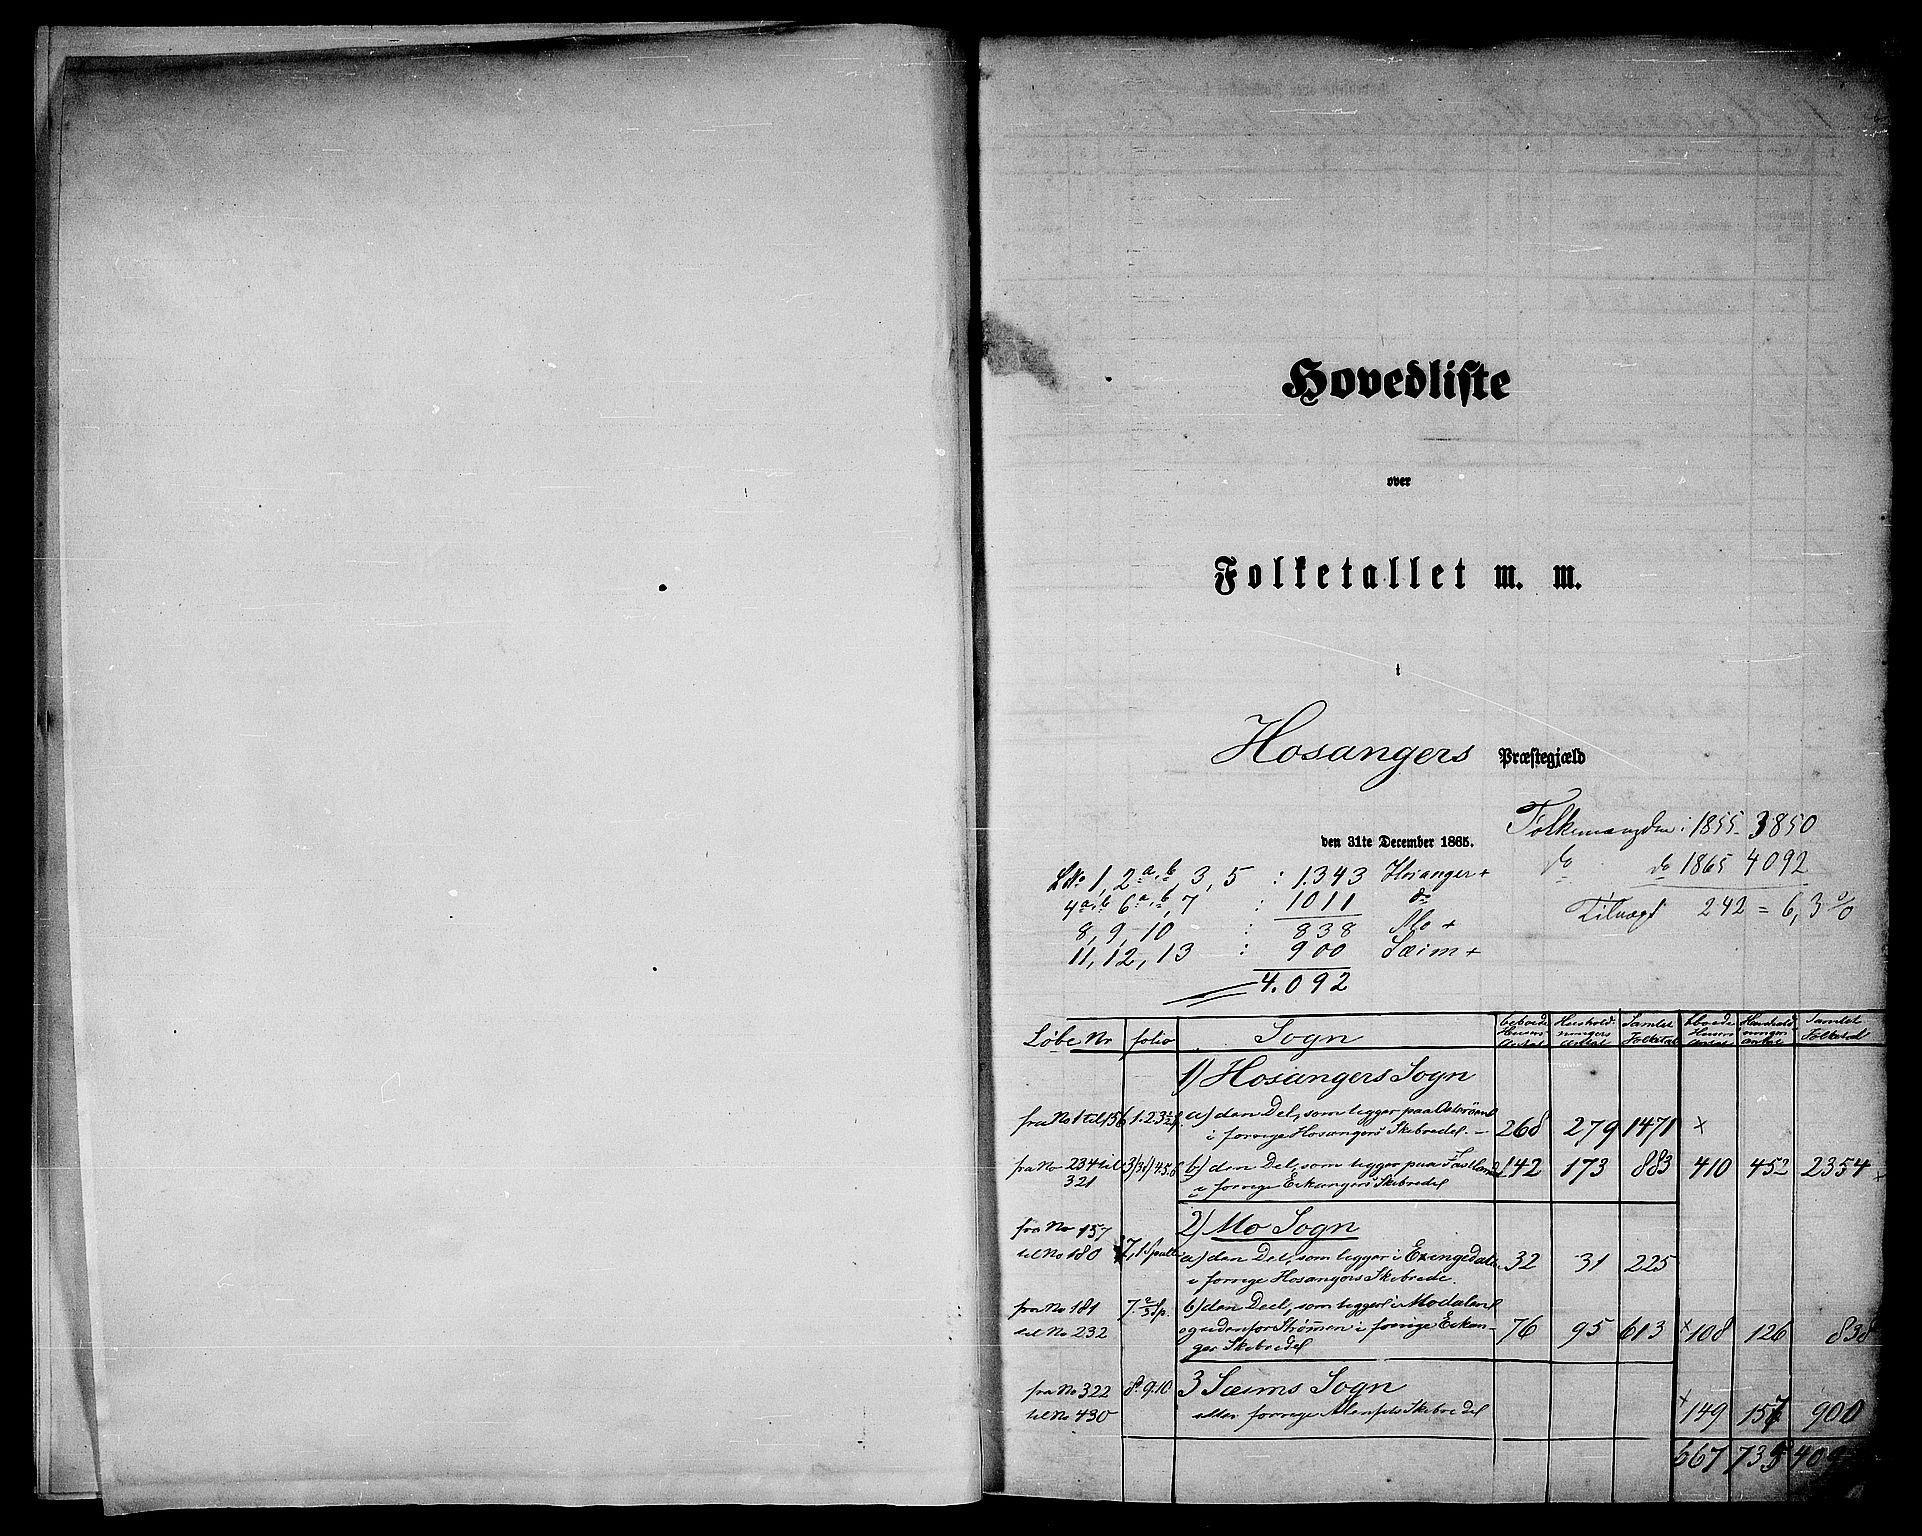 Hovedliste
over
Folketallet m. m.
i
Hosangers Præstegjæld
den 31te December 1865.
Folkemængden i 1855 - 3850
do do 1865 4092
Tilvæxt 242 = 6,3 %
LNo 1, 2 a, b, 3, 5 : 1.343 Hosanger +
4 a, b, 6 a, b, 7 : 1011 do
8, 9, 10 : 838 Mo +
11, 12, 13 : 900 Sæim +
4.092
Løbe Nr folio Sogn beboede Huses Antal Hushold- ningers Antal Samlet Folketal bboede Huses Antal Hushold- ningers Antal Samlet Folketal
1) Hosangers Sogn
fra No 1 til 156 1.2.3 a) den Del, som ligger paa Osterøen
i forrige Hosangers Skibrede. - 268 279 1471 x
fra No 234 til 321 b) den Del, som ligger paa Fastlandet
i forrige Eikangers Skibrede 142 173 883 410 452 2354 x
2) Mo Sogn
fra No 157
til No 180 a) den Del, som ligger i Exingedalen
i forrige Hosangers Skibrede. 32 31 225
fra No 181 b) den Deel, som ligger i Modalen
til No 232 og udenfor Strømmen i forrige Eikan-
ger Skibrede 76 95 613 x 108 126 838
fra No 322 8. 9. 10 3 Sæims Sogn
til No 430 eller forrige Skibrede x 149 157 900
667 735